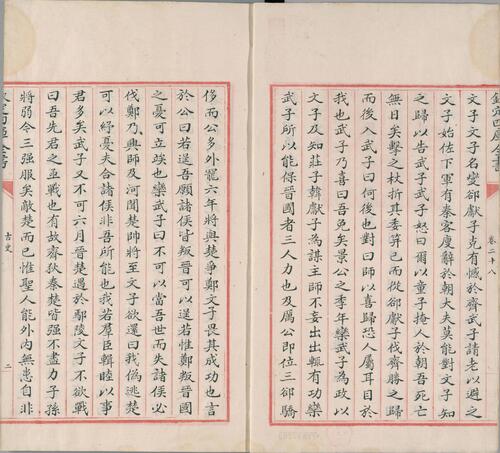 欽定四庫全書
卷二十八
文子文子名燮郤獻子克有憾於齊武子請老以避之
文子始佐下軍有秦客廋辭於朝大夫莫能對文子知
之歸以告武子武子怒曰爾以童子掩人於朝吾死亡
無日矣擊之杖折其委笄已而從郤獻子伐齊勝之歸
而後入武子曰何後也對曰師以喜歸恐人屬耳目於
我也武子乃喜曰吾免矣景公之季年欒武子為政以
文子及知莊子韓獻子為謀主師不妄出出輒有功欒
武子所以能保晉國者三人力也及厲公即位三郤驕
侈而公多外寵六年將與楚爭鄭文子畏其成功也言
於公曰若逞吾願諸侯皆叛晉可以逞若惟鄭叛晉國
之憂可立竢也欒武子曰不可以當吾世而失諸侯必
伐鄭乃興師及河聞楚師將至文子欲還曰我偽逃楚
可以紓憂夫合諸侯非吾所能也我若羣臣輯睦以事
君多矣武子又不可六月晉楚遇於鄢陵文子不欲戰
曰吾先君之亟戰也有故齊狄秦楚皆强不盡力子孫
將弱今三强服矣敵楚而已惟聖人能外內無患自非
古史
二